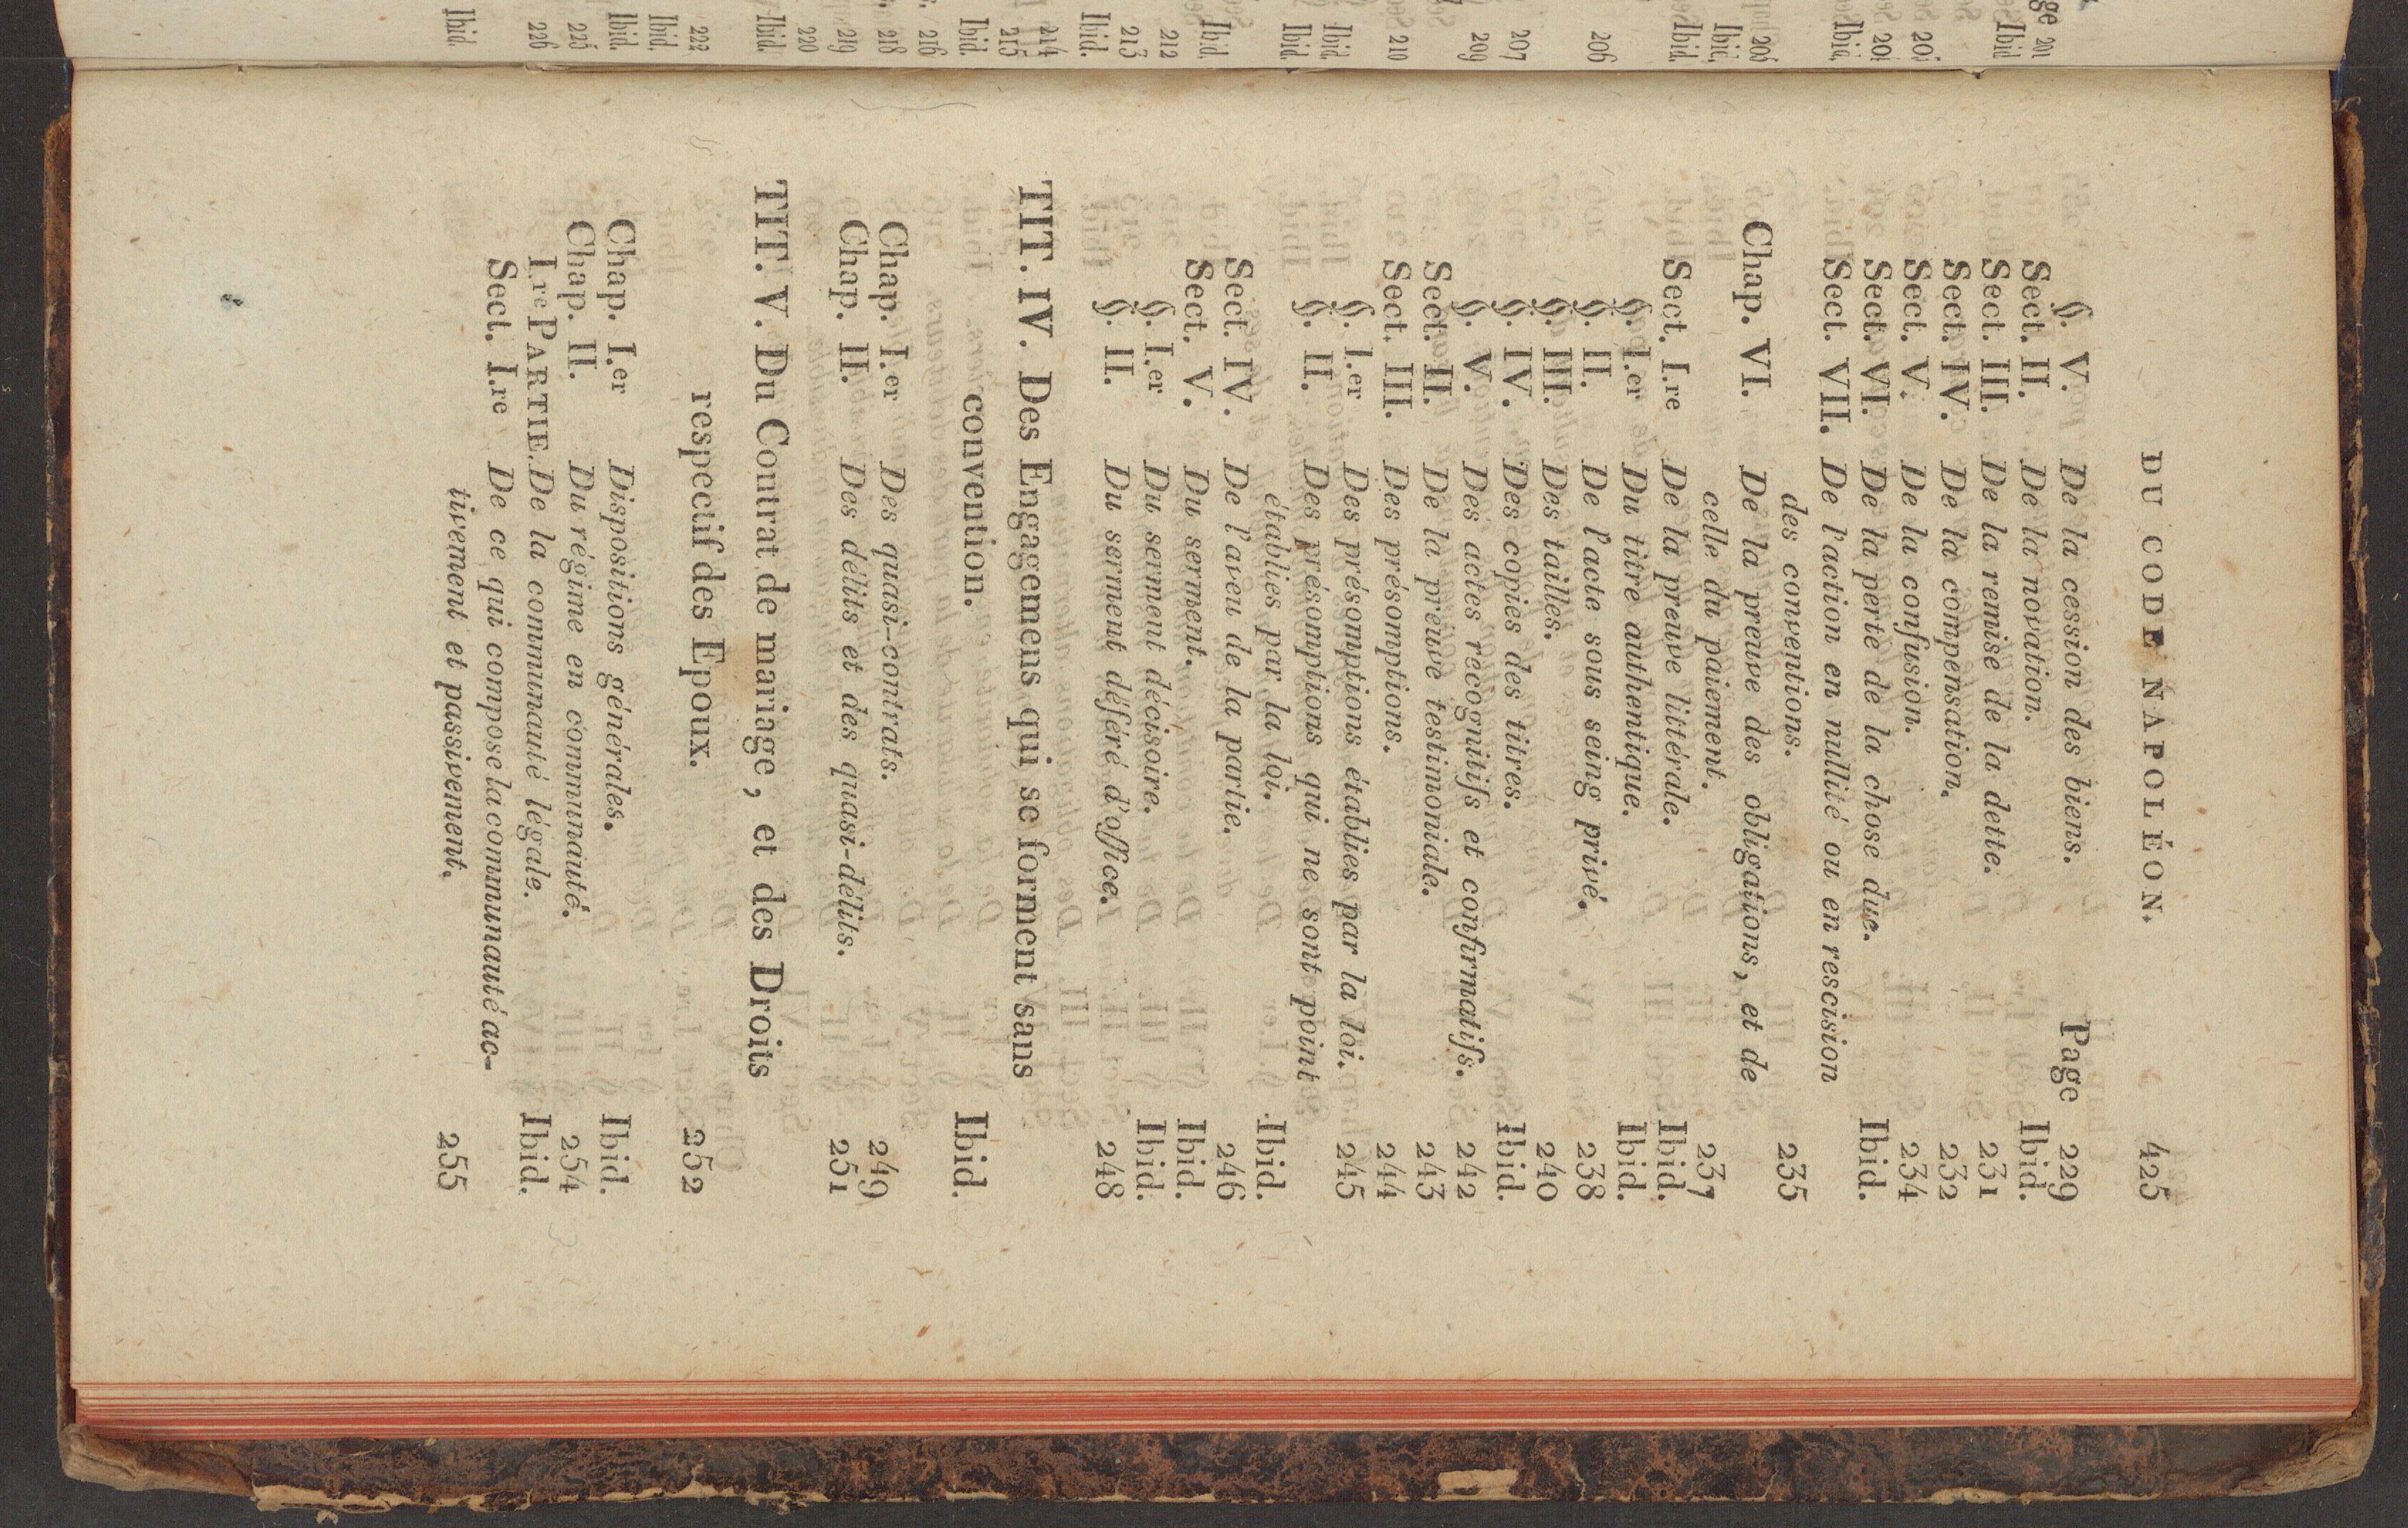 DU CODE NAPOLÉON. 425
§. V. De la cession des biens. Page 229
Sect. II. De la novation. Ibid.
Sect. III. De la remise de la dette. 231
Sect. IV. De la compensation. 232
Sect. V. De la confusion. 234
Sect. VI. De la perte de la chose due. Ibid.
Sect. VII. De l'action en nullité ou en rescision
des conventions. 235
Chap. VI. De la preuve des obligations, et de
celle du paiement. 237
Sect. I.re De la preuve littérale. Ibid.
§. I.er Du titre authentique. Ibid.
§. II. De l'acte sous seing privé. 238
§. III. Des tailles. 240
§. IV. Des copies des titres. Ibid.
§. V. Des actes récognitifs et confirmatifs. 242
Sect. II. De la preuve testimoniale. 243
Sect. III. Des présomptions. 244
§. I.er Des présomptions établies par la loi. 245
§. II. Des présomptions qui ne sont point
établies par la loi. Ibid.
Sect. IV. De l'aveu de la partie. 246
Sect. V. Du serment. Ibid.
§. I.er Du serment décisoire. Ibid.
§. II. Du serment déféré d'office. 248
TIT. IV. Des Engagemens qui se forment sans
convention. Ibid.
Chap. I.er Des quasi-contrats. 249
Chap. II. Des délits et des quasi-délits. 251
TIT. V. Du Contrat de mariage, et des Droits
respectif des Epoux. 252
Chap. I.er Dispositions générales. Ibid.
Chap. II. Du régime en communauté. 254
I.re PARTIE. De la communauté légale. Ibid.
Sect. I.re De ce qui compose la communauté ac-
tivement et passivement. 255